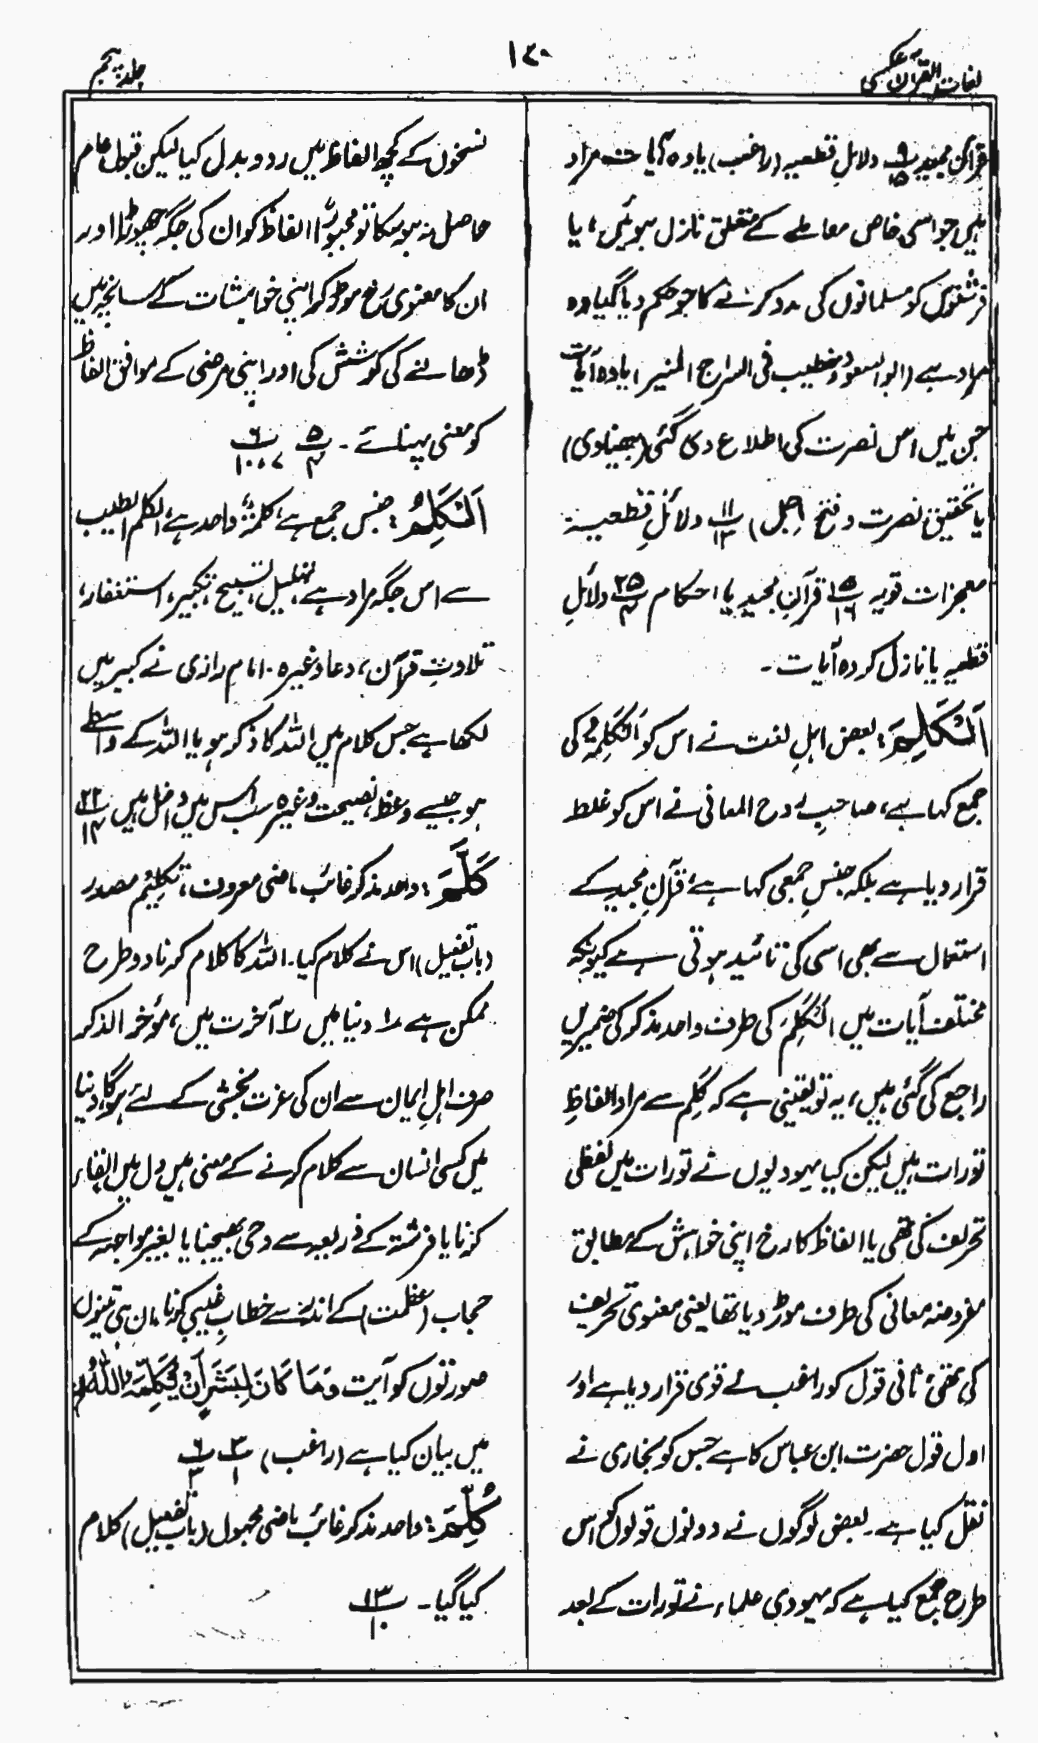 لغات القرآن عکسی
۱۲۰
جلد پنجم
قرآنِ مجید پ۹/۱۵ دلائلِ قطعیہ (راغب) یا وہ آیات مراد
ہیں جو اسی خاص معاملے کے متعلق نازل ہوئیں، یا
فرشتوں کو مسلمانوں کی مدد کرنے کا جو حکم دیا گیا وہ
مراد ہے (ابوالسعود و خطیب فی السراج المنیر) یا وہ آیات
جن میں اس نصرت کی اطلاع دی گئی (بیضاوی)
یا تحقیق نصرت و فتح (جمل) پ۱۱/۱۲ دلائلِ قطعیہ
معجزات قویہ پ۱۵/۱۶ قرآنِ مجید یا احکام پ۲۵/۴ دلائلِ
قطعیہ یا نازل کردہ آیات۔
اَلْکَلِمَ: بعض اہلِ لغت نے اس کو اَلْکَلِمَۃُ کی
جمع کہا ہے، صاحبِ روح المعانی نے اس کو غلط
قرار دیا ہے بلکہ جنسِ جمعی کہا ہے، قرآنِ مجید کے
استعمال سے بھی اسی کی تائید ہوتی ہے کیونکہ
مختلف آیات میں اَلْکَلِمَ کی طرف واحد مذکر کی ضمیریں
راجع کی گئی ہیں، یہ تو یقینی ہے کہ کَلِم سے مراد الفاظِ
تورات ہیں لیکن کیا یہودیوں نے تورات میں لفظی
تحریف کی تھی یا الفاظ کا رخ اپنی خواہش کے مطابق
مفروضہ معانی کی طرف موڑ دیا تھا یعنی معنوی تحریف
کی تھی، ثانی قول کو راغب نے قوی قرار دیا ہے اور
اول قول حضرت ابن عباس کا ہے جس کو بخاری نے
نقل کیا ہے۔ بعض لوگوں نے دونوں قولوں کو اس
طرح جمع کیا ہے کہ یہودی علماء نے تورات کے بعد
نسخوں کے کچھ الفاظ میں رد و بدل کیا لیکن قبول عام
حاصل نہ ہو سکا تو مجبوراً الفاظ کو ان کی جگہ چھوڑا اور
ان کا معنوی رخ موڑ کر اپنی خواہشات کے سانچے میں
ڈھالنے کی کوشش کی اور اپنی مرضی کے موافق الفاظ
کو معنی پہنائے۔ پ۵/۴ پ۶/۱۰،۷
اَلْکَلِمُ: جنس جمع ہے، کلمۃٌ واحد ہے، الکلم الطیب
سے اس جگہ مراد ہے تہلیل، تسبیح، تکبیر، استغفار،
تلاوتِ قرآن، دعا وغیرہ۔ امام رازی نے کبیر میں
لکھا ہے جس کلام میں اللہ کا ذکر ہو یا اللہ کے واسطے
ہو جیسے وعظ، نصیحت وغیرہ سب اس میں داخل ہیں پ۲۲/۱۴
کَلَّمَ: واحد مذکر غائب ماضی معروف، تَکْلِیْمٌ مصدر
(باب تفعیل) اس نے کلام کیا۔ اللہ کا کلام کرنا دو طرح
ممکن ہے ۱؎ دنیا میں ۲؎ آخرت میں، مؤخر الذکر
صرف اہلِ ایمان سے ان کی عزت بخشی کے لئے ہوگا، دنیا
میں کسی انسان سے کلام کرنے کے معنی ہیں دل میں القاء
کرنا یا فرشتہ کے ذریعہ سے وحی بھیجنا یا بغیر مواجہہ کے
حجاب (عظمت) کے اندر سے خطابِ غیبی کرنا، ان ہی تینوں
صورتوں کو آیت وَمَا کَانَ لِبَشَرٍ اَنْ یُّکَلِّمَہُ اللّٰہُ
میں بیان کیا ہے (راغب) پ۳/۱ پ۶/۳
کُلِّمَ: واحد مذکر غائب ماضی مجہول (باب تفعیل) کلام
کیا گیا۔ پ۱۳/۱۰